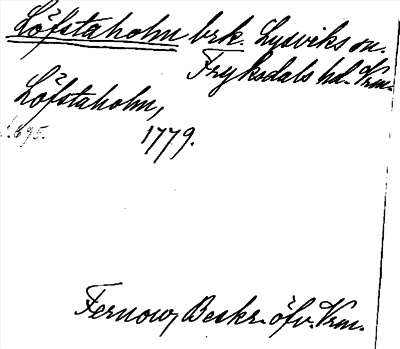 Löfstaholm brk. Lysviks sn.
Fryksdals hd. Vrm.
Löfstaholm,
s. 695. 1779.
Fernow, Beskr. öfv. Vrm.